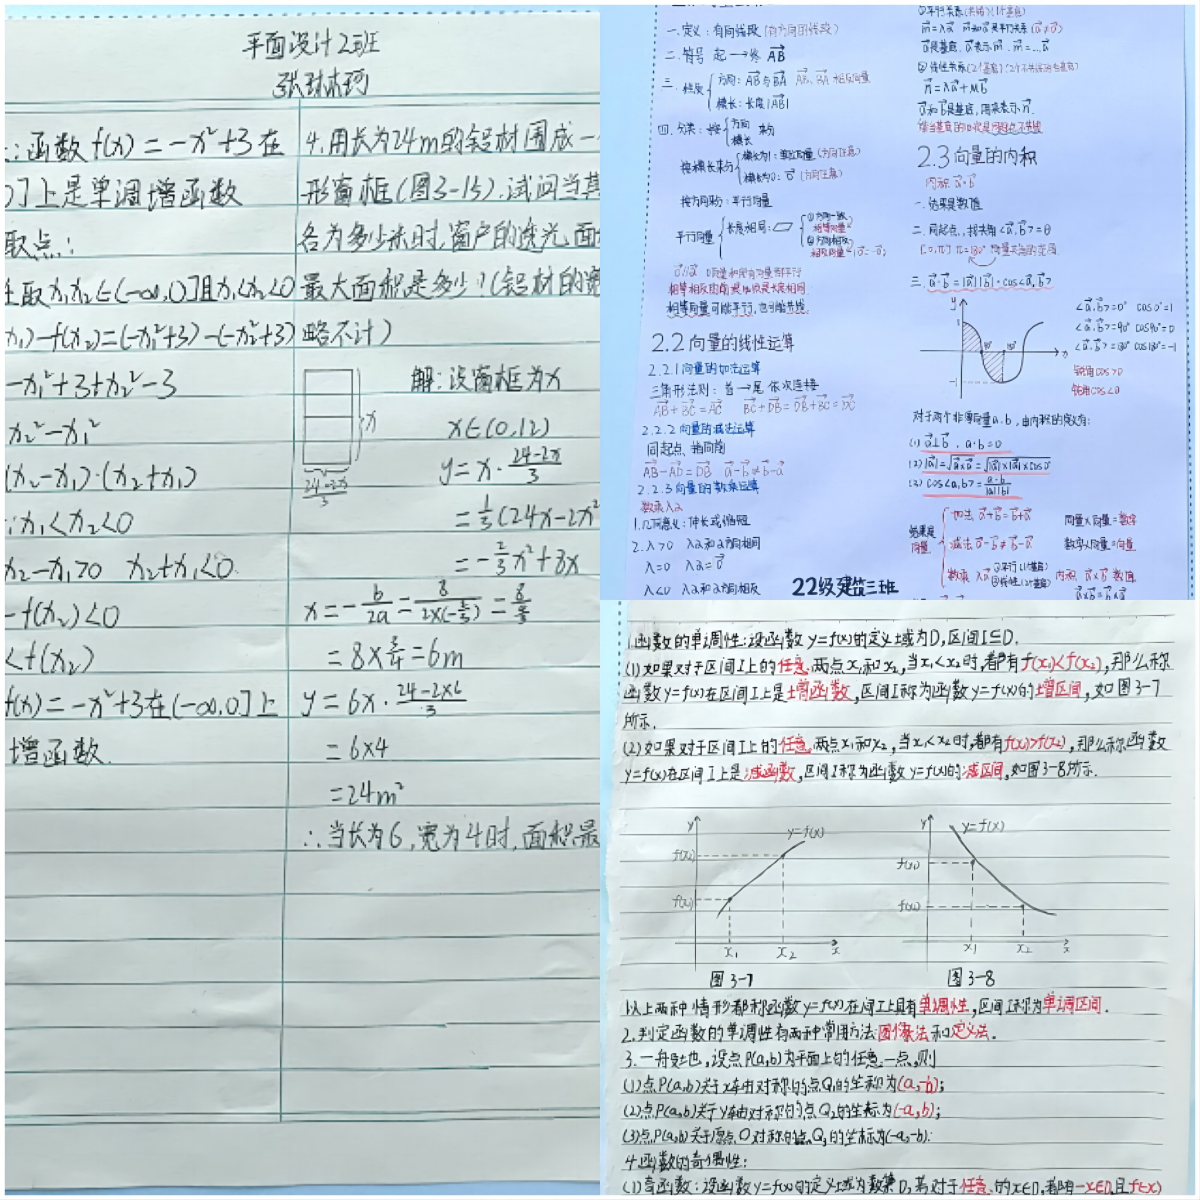 平面设计2班
张琳珂
函数f(x)=-x²+3在
0]上是单调增函数
取点:
取x₁,x₂∈(-∞,0]且x₁<x₂<0
x₁)-f(x₂)=(-x₁²+3)-(-x₂²+3)
-x₁²+3+x₂²-3
x₂²-x₁²
(x₂-x₁)·(x₂+x₁)
∵x₁<x₂<0
x₂-x₁>0 x₂+x₁<0
-f(x₂)<0
<f(x₂)
f(x)=-x²+3在(-∞,0]上
增函数.
4.用长为24m的铝材围成一
形窗框(图3-15).试问当其
各为多少米时,窗户的透光面
最大面积是多少?(铝材的宽
略不计)
解:设窗框为x
x
24-2x/3
x∈(0,12)
y=x·24-2x/3
=1/3(24x-2x²
=-2/3x²+8x
x=-b/2a=8/2×(-2/3)=8/4/3
=8×3/4=6m
y=6x·24-2×6/3
=6×4
=24m²
∴当长为6,宽为4时,面积最
一.定义:有向线段(有方向的线段)
二.符号 起→终 AB
三.性质 方向:AB与BA AB、BA相反向量
模长:长度|AB|
四.分类:按 方向 模长 来分
按模长来分 模长为1:单位向量(方向任意)
模长为0:0(方向任意)
按方向来分:平行向量
平行向量 长度相同: ①方向一致 相等向量
②方向相反 相反向量
0向量和所有向量都平行
相等向量可能平行,也可能共线
2.2向量的线性运算
2.2.1向量的加法运算
三角形法则:首→尾 依次连接
AB+BC=AC BC+DB=DB+BC=DC
2.2.2向量的减法运算
同起点、指向前
AB-AD=DB a-b≠b-a
2.2.3向量的数乘运算
数乘λa
1.几何意义:伸长或缩短
2.λ>0 λa和a方向相同
λ=0 λa=0
λ<0 λa和a方向相反
22级建筑三班
①平行关系(共线)(1个基底)
②线性关系(2个基底)
n=λa+μb
a和b是基底,用来表示n.
2.3向量的内积
内积a·b
一.结果是数值
二.同起点,找夹角<a,b>=θ
[0,π] π=180°
三.a·b=|a||b|·cos<a,b>
y
1
-1
x
<a,b>=0° cos0°=1
<a,b>=90° cos90°=0
<a,b>=180° cos180°=-1
锐角cos>0
钝角cos<0
对于两个非零向量a.b,由内积的定义有:
(1)a⊥b.a·b=0
(2)|a|=√a×a=√|a|×|a|×cos0°
(3)cos<a,b>=a·b/|a||b|
结果是向量
加法 a+b=b+a
减法 a-b≠b-a
数乘 λa ①平行(1个基底) ②线性(2个基底)
向量×向量=数字
数字×向量=向量
内积 a×b 数值
a×b=b×a
1.函数的单调性:设函数y=f(x)的定义域为D,区间I⊆D.
(1)如果对于区间I上的任意两点x₁和x₂,当x₁<x₂时,都有f(x₁)<f(x₂),那么称
函数y=f(x)在区间I上是增函数,区间I称为函数y=f(x)的增区间,如图3-7
所示.
(2)如果对于区间I上的任意两点x₁和x₂,当x₁<x₂时,都有f(x₁)>f(x₂),那么称函数
y=f(x)在区间I上是减函数,区间I称为函数y=f(x)的减区间,如图3-8所示.
y
y=f(x)
f(x₂)
f(x₁)
x₁ x₂ x
图3-7
y
y=f(x)
f(x₁)
f(x₂)
x₁ x₂ x
图3-8
以上两种情形都称函数y=f(x)在间I上具有单调性,区间I称为单调区间.
2.判定函数的单调性有两种常用方法图像法和定义法.
3.一般地,设点P(a,b)为平面上的任意一点,则
(1)点P(a,b)关于x轴由对称的点Q₁的坐标为(a,-b);
(2)点P(a,b)关于y轴由对称的点Q₂的坐标为(-a,b);
(3)点P(a,b)关于原点O对称的点Q₃的坐标为(-a,-b).
4.函数的奇偶性:
(1)奇函数:设函数y=f(x)的定义域为数集D,若对于任意的x∈D,都有-x∈D,且f(-x)